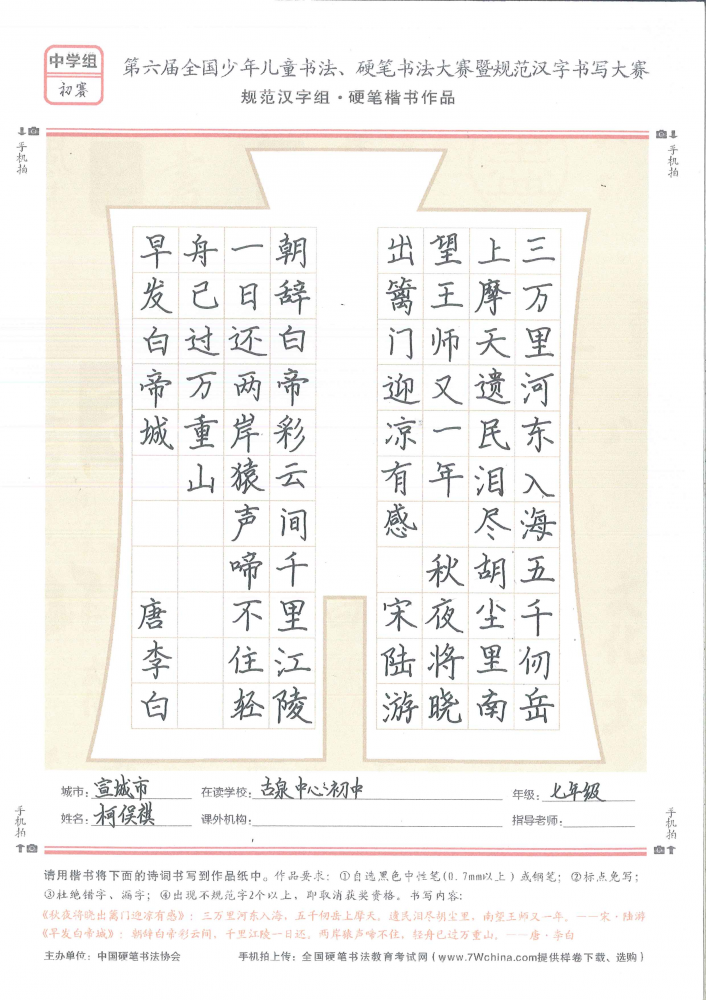 中学组
初赛
第六届全国少年儿童书法、硬笔书法大赛暨规范汉字书写大赛
规范汉字组·硬笔楷书作品
手机拍
手机拍
三万里河东入海五千仞岳
上摩天遗民泪尽胡尘里南
望王师又一年 秋夜将晓
出篱门迎凉有感 宋陆游
朝辞白帝彩云间千里江陵
一日还两岸猿声啼不住轻
舟已过万重山
早发白帝城 唐李白
城市：宣城市 在读学校：古泉中心初中 年级：七年级
姓名：柯俣祺 课外机构： 指导老师：
手机拍
手机拍
请用楷书将下面的诗词书写到作品纸中。作品要求：①自选黑色中性笔(0.7mm以上)或钢笔；②标点免写；
③杜绝错字、漏字；④出现不规范字2个以上，即取消获奖资格。书写内容：
《秋夜将晓出篱门迎凉有感》：三万里河东入海，五千仞岳上摩天。遗民泪尽胡尘里，南望王师又一年。——宋·陆游
《早发白帝城》：朝辞白帝彩云间，千里江陵一日还。两岸猿声啼不住，轻舟已过万重山。——唐·李白
主办单位：中国硬笔书法协会 手机拍上传：全国硬笔书法教育考试网（www.7Wchina.com提供样卷下载、选购）